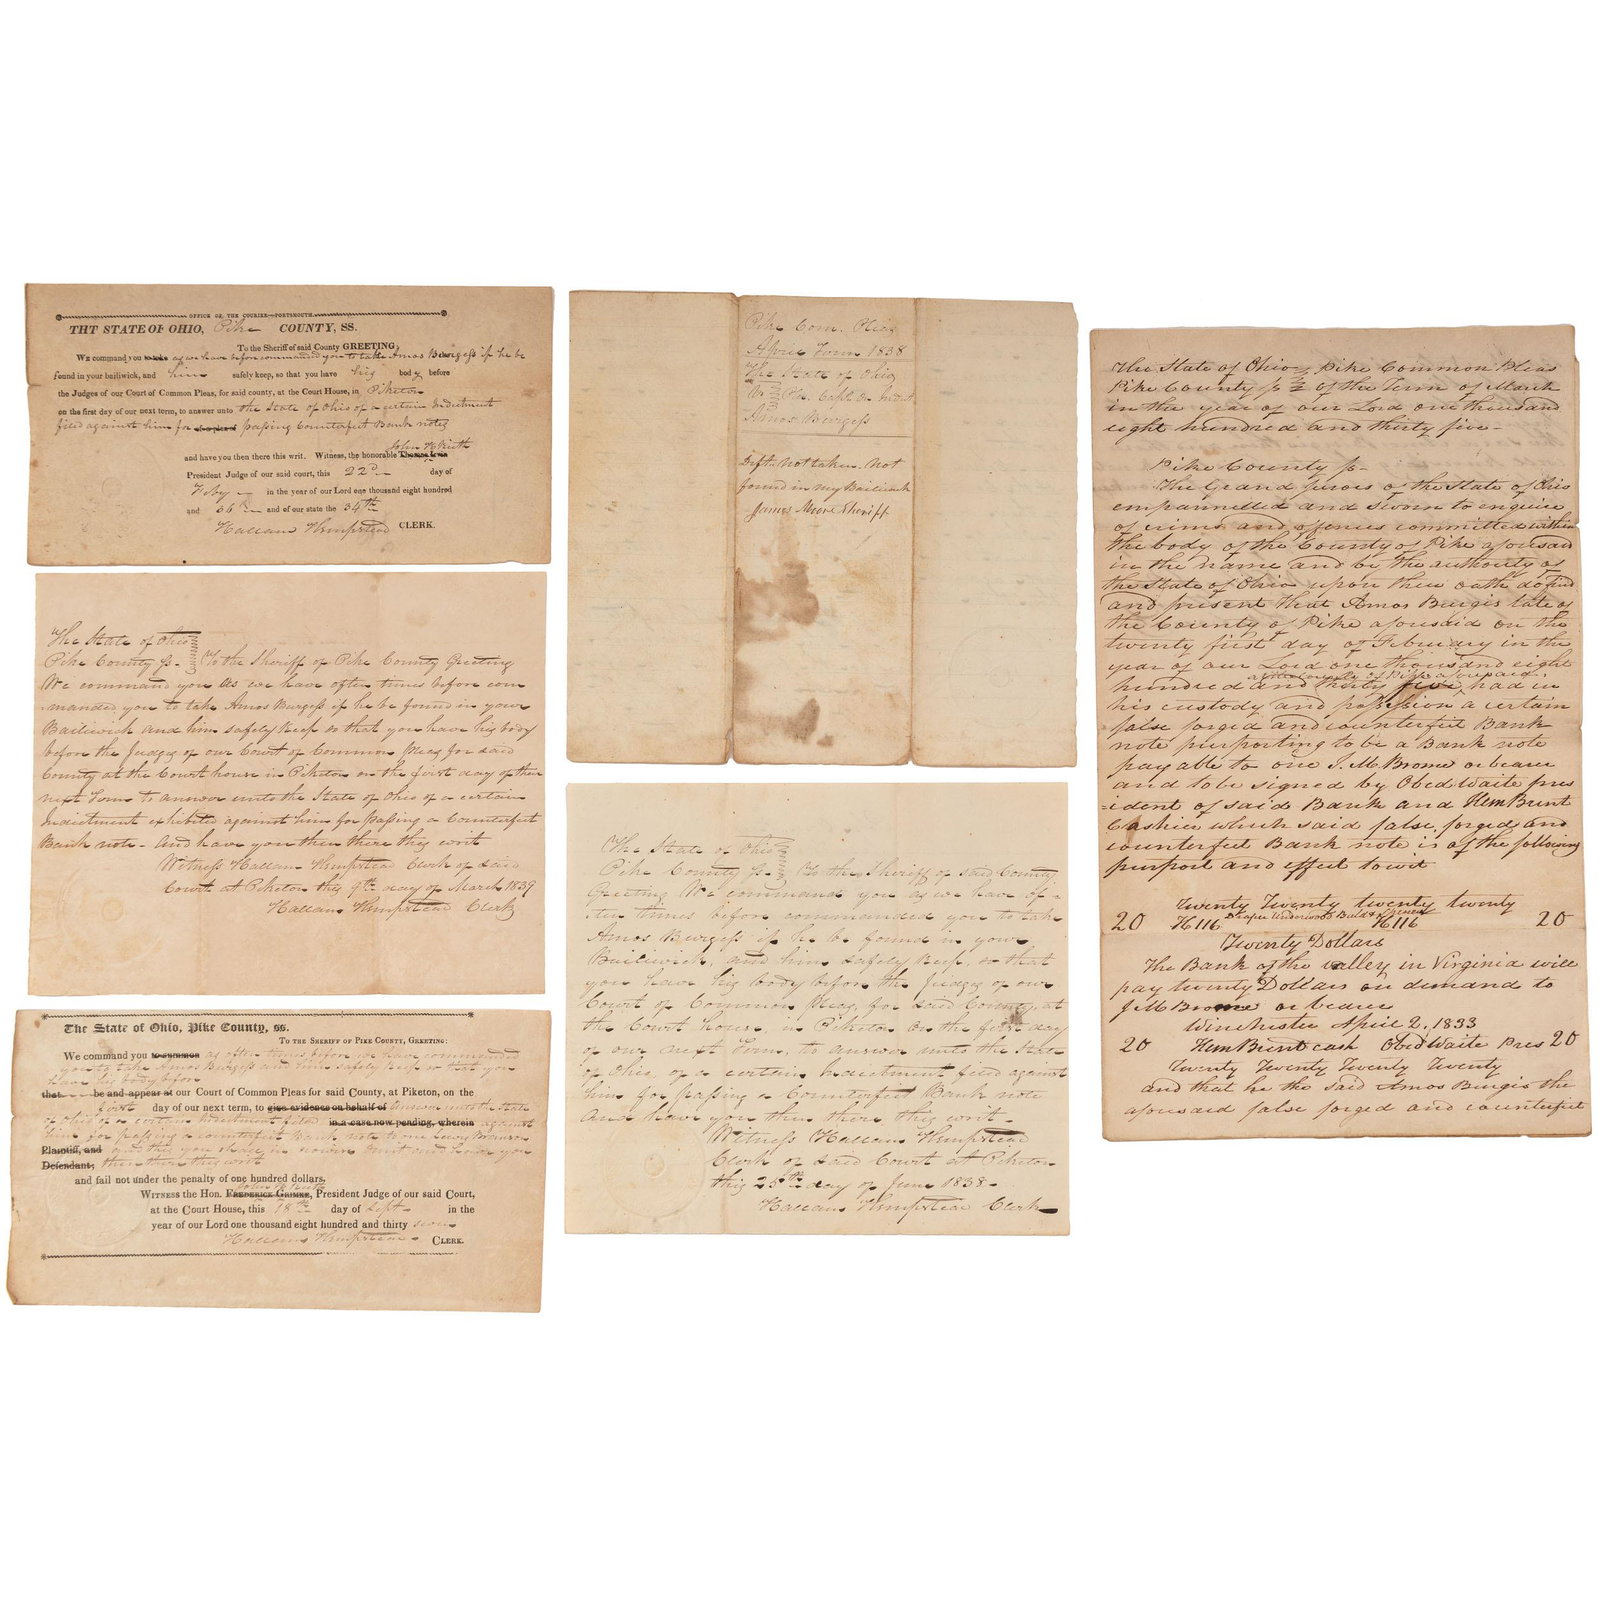 OFFICE OF THE COURIER—PORTSMOUTH.
THT STATE OF OHIO, Pike COUNTY, SS.
To the Sheriff of said County GREETING;
WE command you to take as we have before commanded you to take Amos Burgess if he be
found in your bailiwick, and him safely keep, so that you have his body before
the Judges of our Court of Common Pleas, for said county, at the Court House, in Piketon
on the first day of our next term, to answer unto the State of Ohio of a certain Indictment
filed against him for passing Counterfeit Bank notes
John H Keith
and have you then there this writ. Witness, the honorable Thomas Irwin
President Judge of our said court, this 22d day of
Feby in the year of our Lord one thousand eight hundred
and 36 and of our state the 34th
Hallam Hempstead CLERK.
The State of Ohio
Pike County ss. To the Sheriff of Pike County Greeting
We command you As we have often times before com
manded you to take Amos Burgess if he be found in your
Bailiwick and him safely keep so that you have his body
before the Judges of our Court of Common Pleas for said
County at the Court house in Piketon on the first day of their
next Term to answer unto the State of Ohio of a certain
Indictment exhibited against him for passing a Counterfeit
Bank note - And have you then there this writ
Witness Hallam Hempstead Clerk of said
Court at Piketon this 9th day of March 1839
Hallam Hempstead Clerk
The State of Ohio, Pike County, ss.
TO THE SHERIFF OF PIKE COUNTY, GREETING:
We command you to summon as often times before we have commanded
you to take Amos Burgess and him safely keep so that you
have his body before
that be and appear at our Court of Common Pleas for said County, at Piketon, on the
first day of our next term, to give evidence on behalf of answer unto the State
of Ohio of a certain Indictment filed in a case now pending, wherein against
him for passing a counterfeit Bank note to one
Plaintiff, and and this you shall in nowise omit and have you
Defendant; then there this writ
and fail not under the penalty of one hundred dollars.
John H Keith
WITNESS the Hon. FREDERICK GRIMKE, President Judge of our said Court,
at the Court House, this 18th day of Sept in the
year of our Lord one thousand eight hundred and thirty seven
Hallam Hempstead CLERK.
Pike Com. Pleas
April Term 1838
The State of Ohio
vs Pls. Caps. on Indict
Amos Burgess
Deft. Not taken. Not
found in my Bailiwick
James Moore Sheriff
The State of Ohio
Pike County ss. To the Sheriff of said County
Greeting We command you as we have of-
ten times before commanded you to take
Amos Burgess if he be found in your
Bailiwick, and him safely keep, so that
you have his body before the Judges of our
Court of Common Pleas, for said County, at
the Court house, in Piketon on the first day
of our next Term, to answer unto the State
of Ohio, of a certain Indictment filed against
him for passing a Counterfeit Bank note
And have you then there this writ
Witness Hallam Hempstead
Clerk of said Court at Piketon
this 25th day of June 1838-
Hallam Hempstead Clerk
The State of Ohio Pike Common Pleas
Pike County ss of the Term of March
in the year of our Lord one thousand
eight hundred and thirty five-
Pike County ss-
The Grand jurors of the State of Ohio
empannelled and sworn to enquire
of crimes and offences committed within
the body of the County of Pike aforesaid
in the name and by the authority of
the State of Ohio upon their oath do find
and present that Amos Burgis late of
the County of Pike aforesaid on the
twenty first day of February in the
year of our Lord one thousand eight
at the county of Pike aforesaid
hundred and thirty five, had in
his custody and possession a certain
false forged and counterfeit Bank
note purporting to be a Bank note
payable to one J. M. Brome or bearer
and to be signed by Obed Waite pres
ident of said Bank and Hem Brent
Cashier which said false, forged and
counterfeit Bank note is of the following
purport and effect to wit
Twenty Twenty twenty twenty
20 H116 Draper Underwood Bald & Spencer H116 20
Twenty Dollars
The Bank of the valley in Virginia will
pay twenty Dollars on demand to
J. M Brome or bearer
Winchester April 2. 1833
20 Hem Brent cash Obed Waite Pres 20
Twenty Twenty Twenty Twenty
and that he the said Amos Burgis the
aforesaid false forged and counterfeit